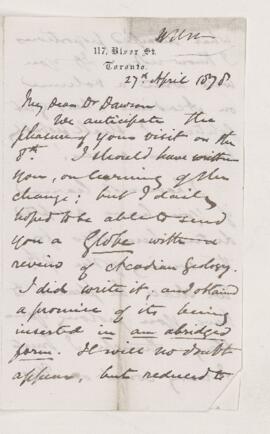 117, Bloor St.
Toronto.
27th April 1878
My dear Dr Dawson
We anticipate the
pleasure of your visit on the
8th. I should have written
you, on learning of the
change; but I daily
hoped to be able to send
you a Globe with a
review of Acadian Geology.
I did write it, and obtained
a promise of its being
inserted in an abridged
form. It will no doubt
appear, but reduced to